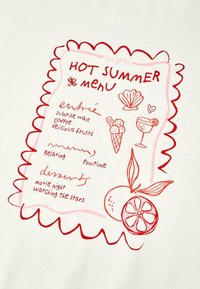 HOT SUMMER
& MENU
entrié
SUNRISE WALK
COFFEE
DELICIOUS FRUITS
menus
RELAXING POOLTIME
desserts
MOVIE NIGHT
WATCHING THE STARS